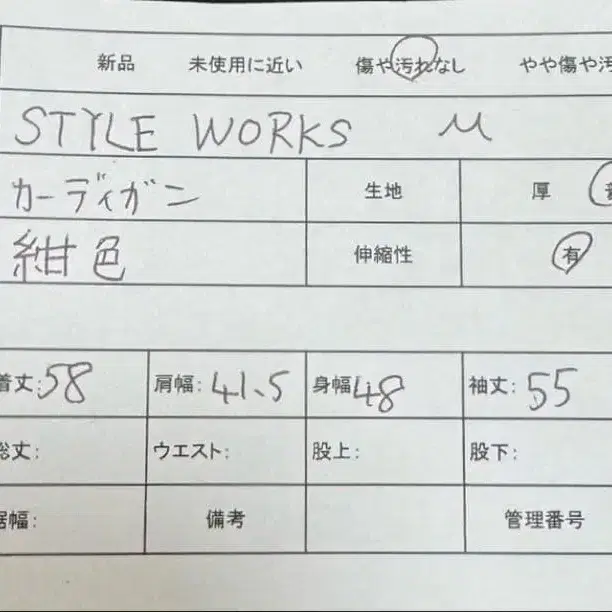 新品 未使用に近い 傷や汚れなし やや傷や汚
STYLE WORKS M
カーディガン 生地 厚
紺色 伸縮性 有
着丈:58 肩幅:41.5 身幅48 袖丈:55
総丈: ウエスト: 股上: 股下:
裾幅: 備考 管理番号